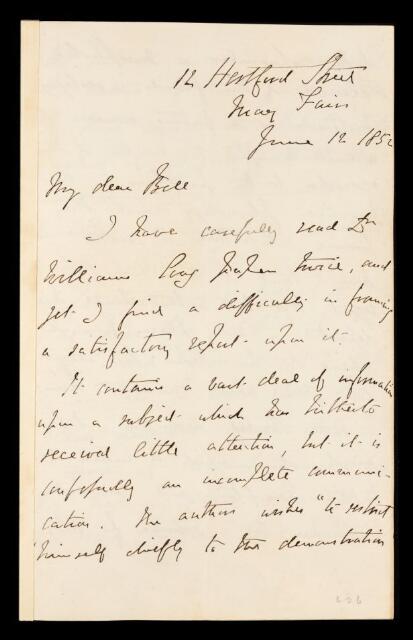 12 Hertford Street
May Fair
June 12 1852
My dear Bell
I have carefully read Dr
Williams long paper twice, and
yet I find a difficulty in framing
a satisfactory report upon it.
It contains a vast deal of information
upon a subject which has hitherto
received little attention, but it is
confessedly an incomplete communi-
cation. The author wishes "to restrict
"himself chiefly to the demonstration